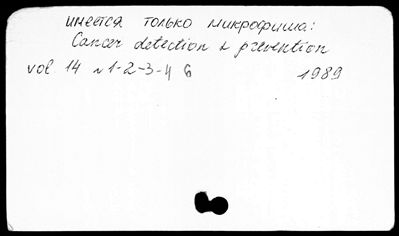 имеется только микрофиша:
Cancer detection & prevention
vol 14 N 1-2-3-4 6 1989